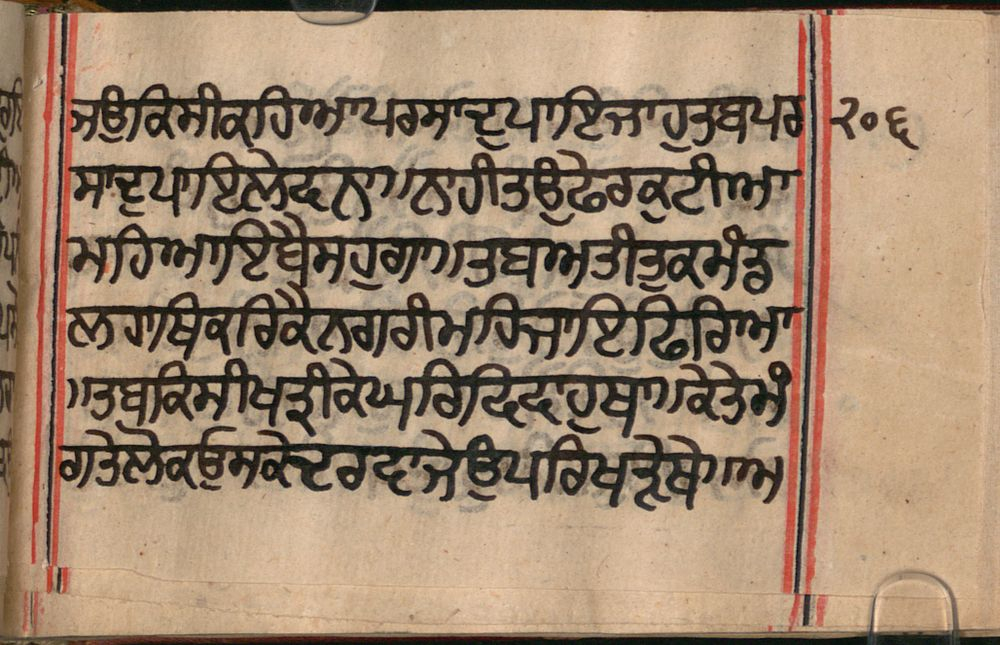 ਜਉਕਿਸੀਕਹਿਆਪਰਸਾਦੁਪਾਇਜਾਹੁਤਬਪਰ ੨੦੬
ਸਾਦੁਪਾਇਲੇਦਨਾ॥ਨਾਹੀਤਉਫੇਰਕੁਟੀਆ
ਮਹਿਆਇਬੈਸਹੁਗਾ॥ਤੁਬਅਤੀਤੁਕਮੰਡ
ਲਹਾਥਿਕਰਿਕੈਨਗਰੀਮਹਿਜਾਇਫਿਰਿਆ
॥ਤਬਕਿਸੀਖਤ੍ਰੀਕੇਘਰਿਦਿਦਾਹੁਥਾ॥ਕੇਤੇਮੰ
ਗਤੇਲੋਕਉਸਕੇਦਰਵਾਜੇਉਪਰਿਖੜੇਥੇ॥ਅ